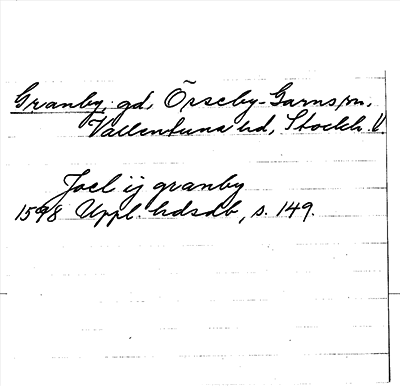 Granby, gd, Össeby-Garns sn,
Vallentuna hd, Stockh.
Joel ij granby
1598 Uppl. hdsdb, s. 149.